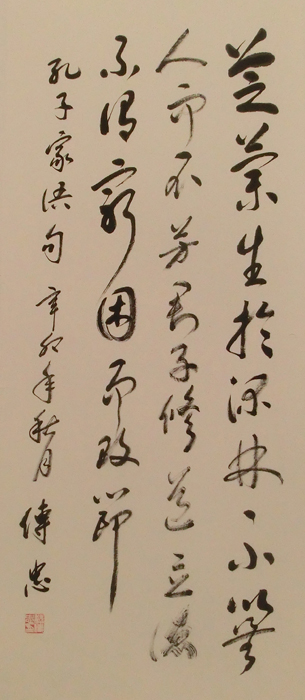 芝蘭生於深林不以無
人而不芳君子修道立德
不謂窮困而改節
孔子家語句 辛卯年秋月 忠